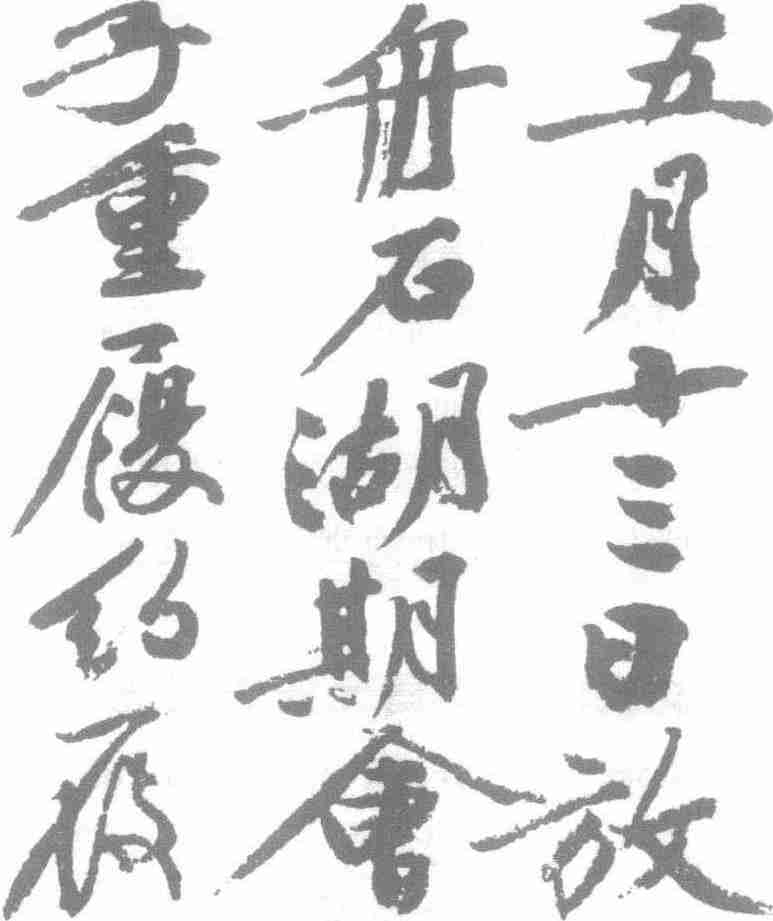 五月十三日放
舟石湖期會
子重履約履